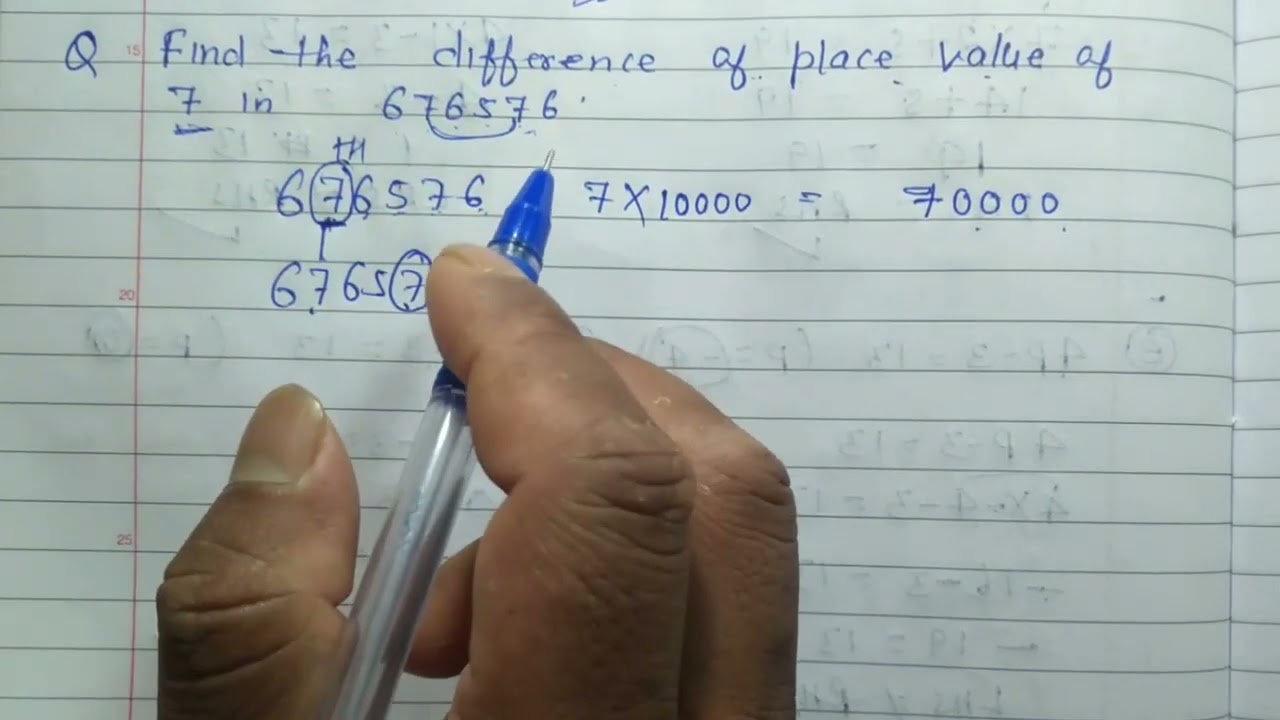 Q 15 Find the difference of place value of
7 in 676576.
TH
676576 7×10000 = 70000
67657
20
25